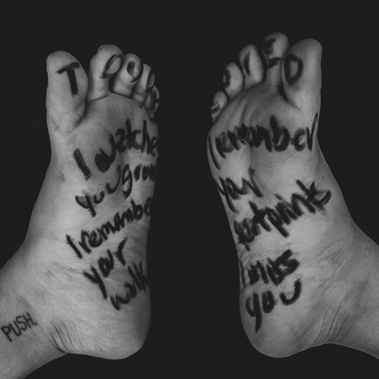 I watched
you grow
I remember
your
walk
PUSH
I remember
your
footprints
I miss
you